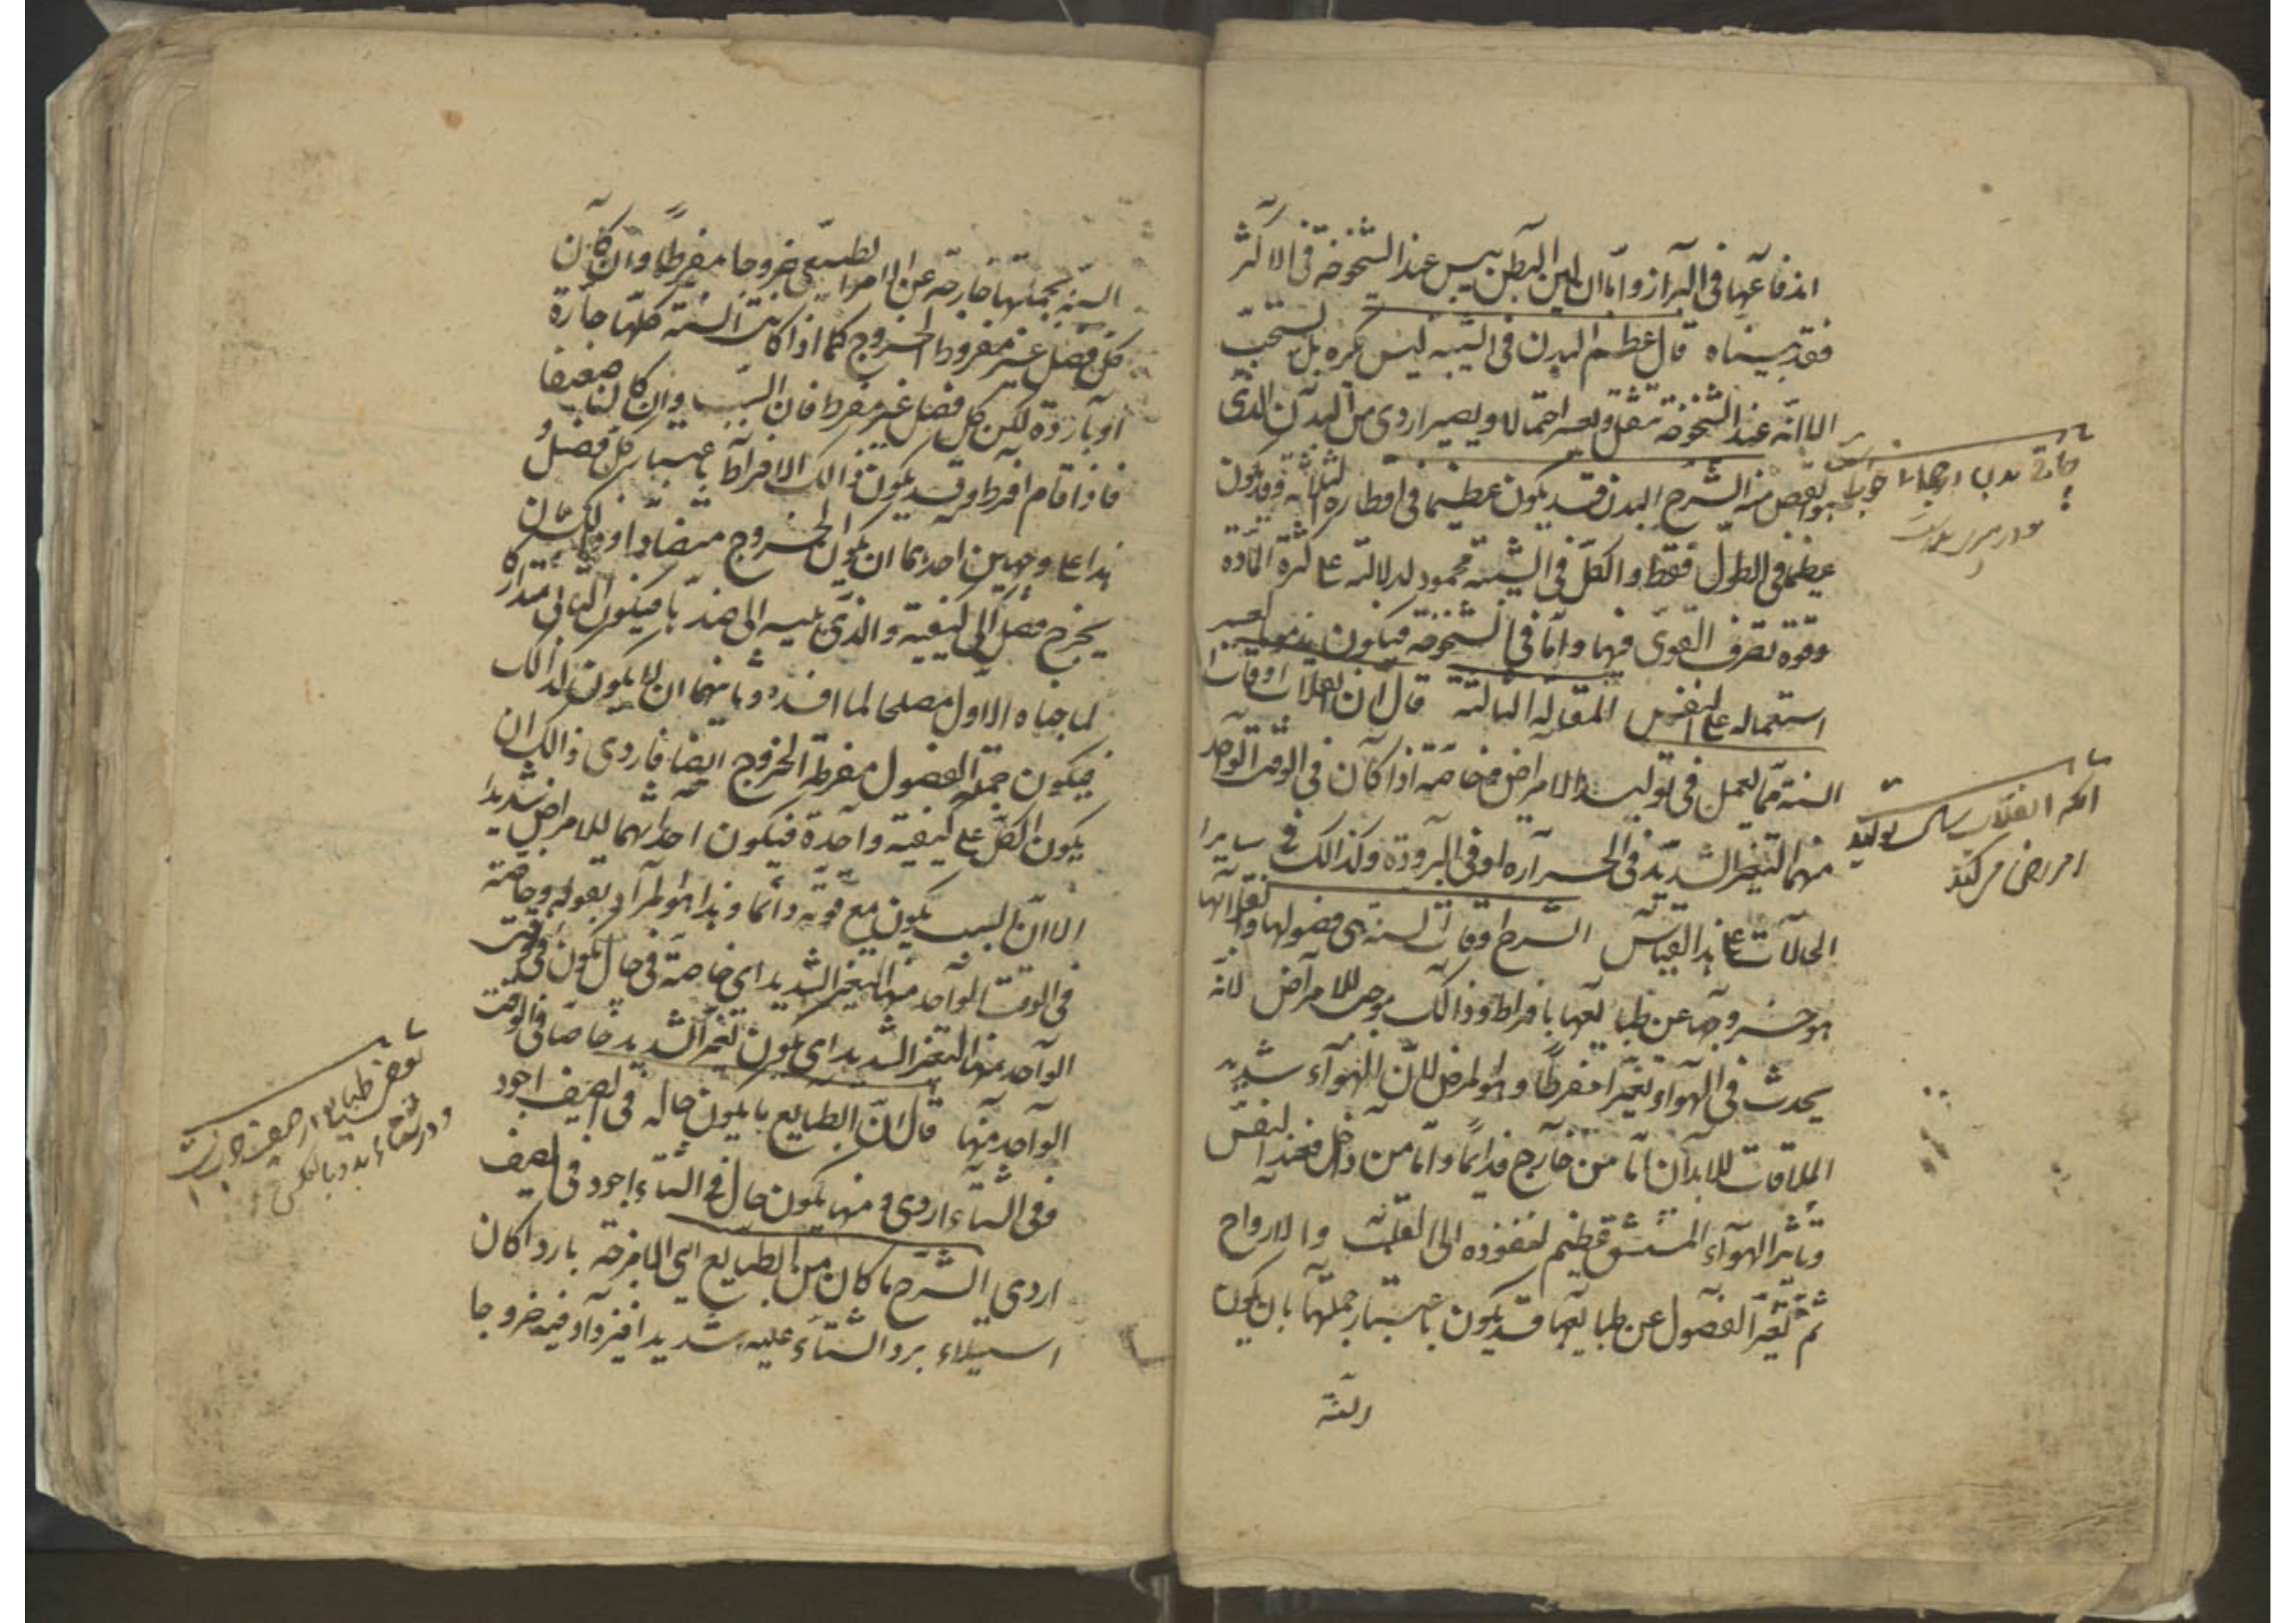 اندفاعها فى البراز واما ان لين البطن ييبس عند الشيخوخة فى الاكثر
فقد بيناه قال عظم البدن فى الشبيبة ليس يكره بل يستحب
الا انه عند الشيخوخة يثقل ويعسر احتماله ويصير اردى من البدن الذى
هو انقص منه الشرح البدن قد يكون عظيما فى اقطاره الثلثة وقد يكون
عظيما فى الطول فقط والكل فى الشبيبة محمود لدلالته على كثرة المادة
وقوة تصرف القوى فيها واما فى الشيخوخة فيكون يعسر
استعماله على النفس المقالة الثالثة قال ان انقلاب اوقات
السنة مما يعمل فى توليد الامراض وخاصة اذا كان فى الوقت الواحد
منها التغير الشديد فى الحرارة او فى البرودة وكذالك فى ساير
الحالات على هذا القياس الشرح اوقات السنة هى فصولها وانقلابها
هو خروجها عن طبايعها بافراط وذالك موجب للامراض لانه
يحدث فى الهواء تغيرا مفرطا وهو لمرض لان الهواء شديد
الملاقات للابدان اما من خارج فدائما واما من داخل فعند التنفس
وتاثير الهواء المستنشق عظيم لنفوذه الى القلب والارواح
ثم تغير الفصول عن طبايعها قد يكون باعتبار جملتها بان يكون
السنة
انقلاب توليد
امراض مى كند
السنة بجملتها خارجة عن الامر الطبيعى خروجا مفرطا وان كان
كل فصل غير مفرط الخروج كما اذا كانت السنة كلها حارة
او باردة لكن كل فصل غير مفرط فان السبب وان كان ضعيفا
فاذا قام افرط وقد يكون ذالك الافراط باعتبار كل فصل
هذا على وجهين احدهما ان يكون الخروج متضادا وذالك بان
يخرج فصل الى كيفية والذى يليه الى ضدها فيكون الثانى متداركا
لما جناه الاول مصلحا لما افسده وثانيهما ان لا يكون كذالك
فيكون جملة الفصول مفرطة الخروج ايضا فاردى ذالك ان
يكون الكل على كيفية واحدة فيكون احداثهما للامراض شديدا
لان السبب يكون مع قوته دائما وهذا هو المراد بقوله وخاصة
فى الوقت الواحد منها التغير الشديد اى خاصة فى حال يكون فى الوقت
الواحد منها التغير الشديد اى يكون التغير الشديد خاصا فى الوقت
الواحد منها قال ان الطبايع ما يكون حاله فى الصيف اجود
وفى الشتاء اردى ومنها يكون حال فى الشتاء اجود فى الصيف
اردى الشرح ما كان من الطبايع اى الامزجة باردا كان
استيلاء برد الشتاء عليه شديدا فيزداد فيه خروجا